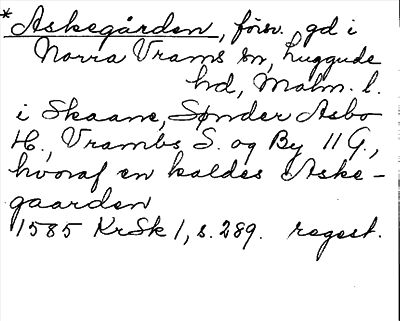 * Askegården, försv. gd i
Norra Vrams sn, Luggude
hd, Malm. l.
i Skaane, Sønder Asbo
H., Vrambs S. og By 11 G.,
hvoraf en kaldes Aske-
gaarden
1585 KrSk 1, s. 289. regest.